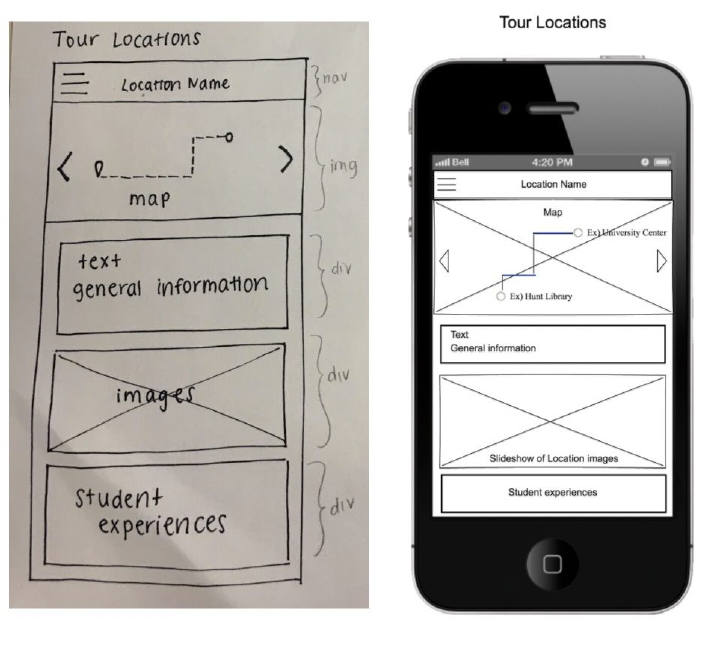 Tour Locations
Location Name
nav
map
img
text
general information
div
images
div
student
experiences
div
Tour Locations
Bell
4:20 PM
Location Name
Map
Ex) University Center
Ex) Hunt Library
Text
General information
Slideshow of Location images
Student experiences